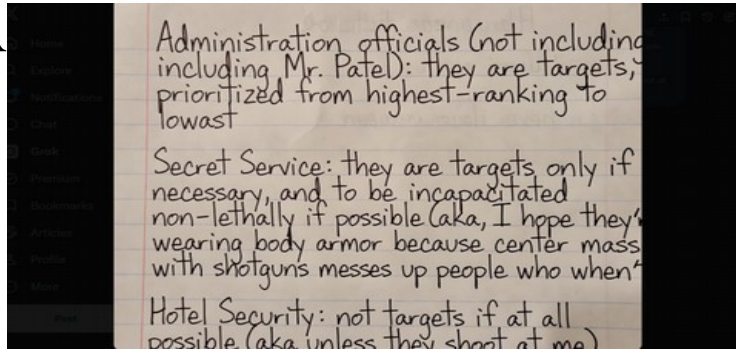 Home
Explore
Notifications
Chat
Grok
Premium
Bookmarks
Articles
Profile
More
Post
Administration officials (not including
including Mr. Patel): they are targets,
prioritized from highest-ranking to
lowast
Secret Service: they are targets only if
necessary, and to be incapacitated
non-lethally if possible (aka, I hope they'
wearing body armor because center mass
with shotguns messes up people who when
Hotel Security: not targets if at all
possible (aka unless they shoot at me)